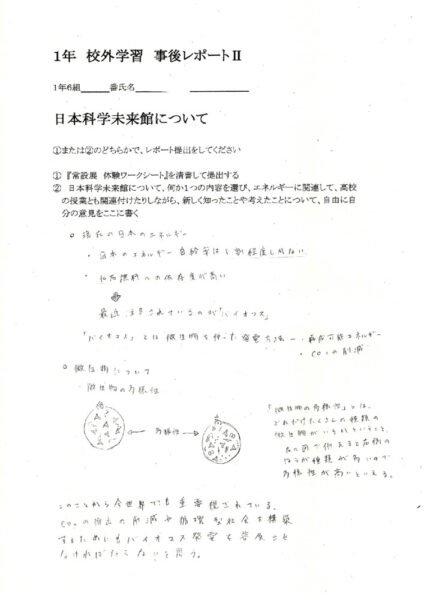 1年 校外学習 事後レポートⅡ
1年6組______番氏名
日本科学未来館について
①または②のどちらかで、レポート提出をしてください
① 『常設展 体験ワークシート』を清書して提出する
② 日本科学未来館について、何か1つの内容を選び、エネルギーに関連して、高校
の授業とも関連付けたりしながら、新しく知ったことや考えたことについて、自由に自
分の意見をここに書く
○ 現在の日本のエネルギー
・日本のエネルギー自給率は1割程度しかない
・化石燃料への依存度が高い
最近注目されているのが「バイオマス」
「バイオマス」とは微生物を使った発電方法 ・再生可能エネルギー
・CO₂の削減
○ 微生物について
・微生物の多様性
低
高
A
多様性
「微生物の多様性」とは、
どれだけたくさんの種類の
微生物がいるかということ。
左の図で例えると右側の
ほうが種類が多いので
多様性が高いといえる。
このことから今世界でも重要視されている
CO₂の排出の削減や循環型社会を構築
するためにもバイオマス発電を普及させ
なければならないと思う。